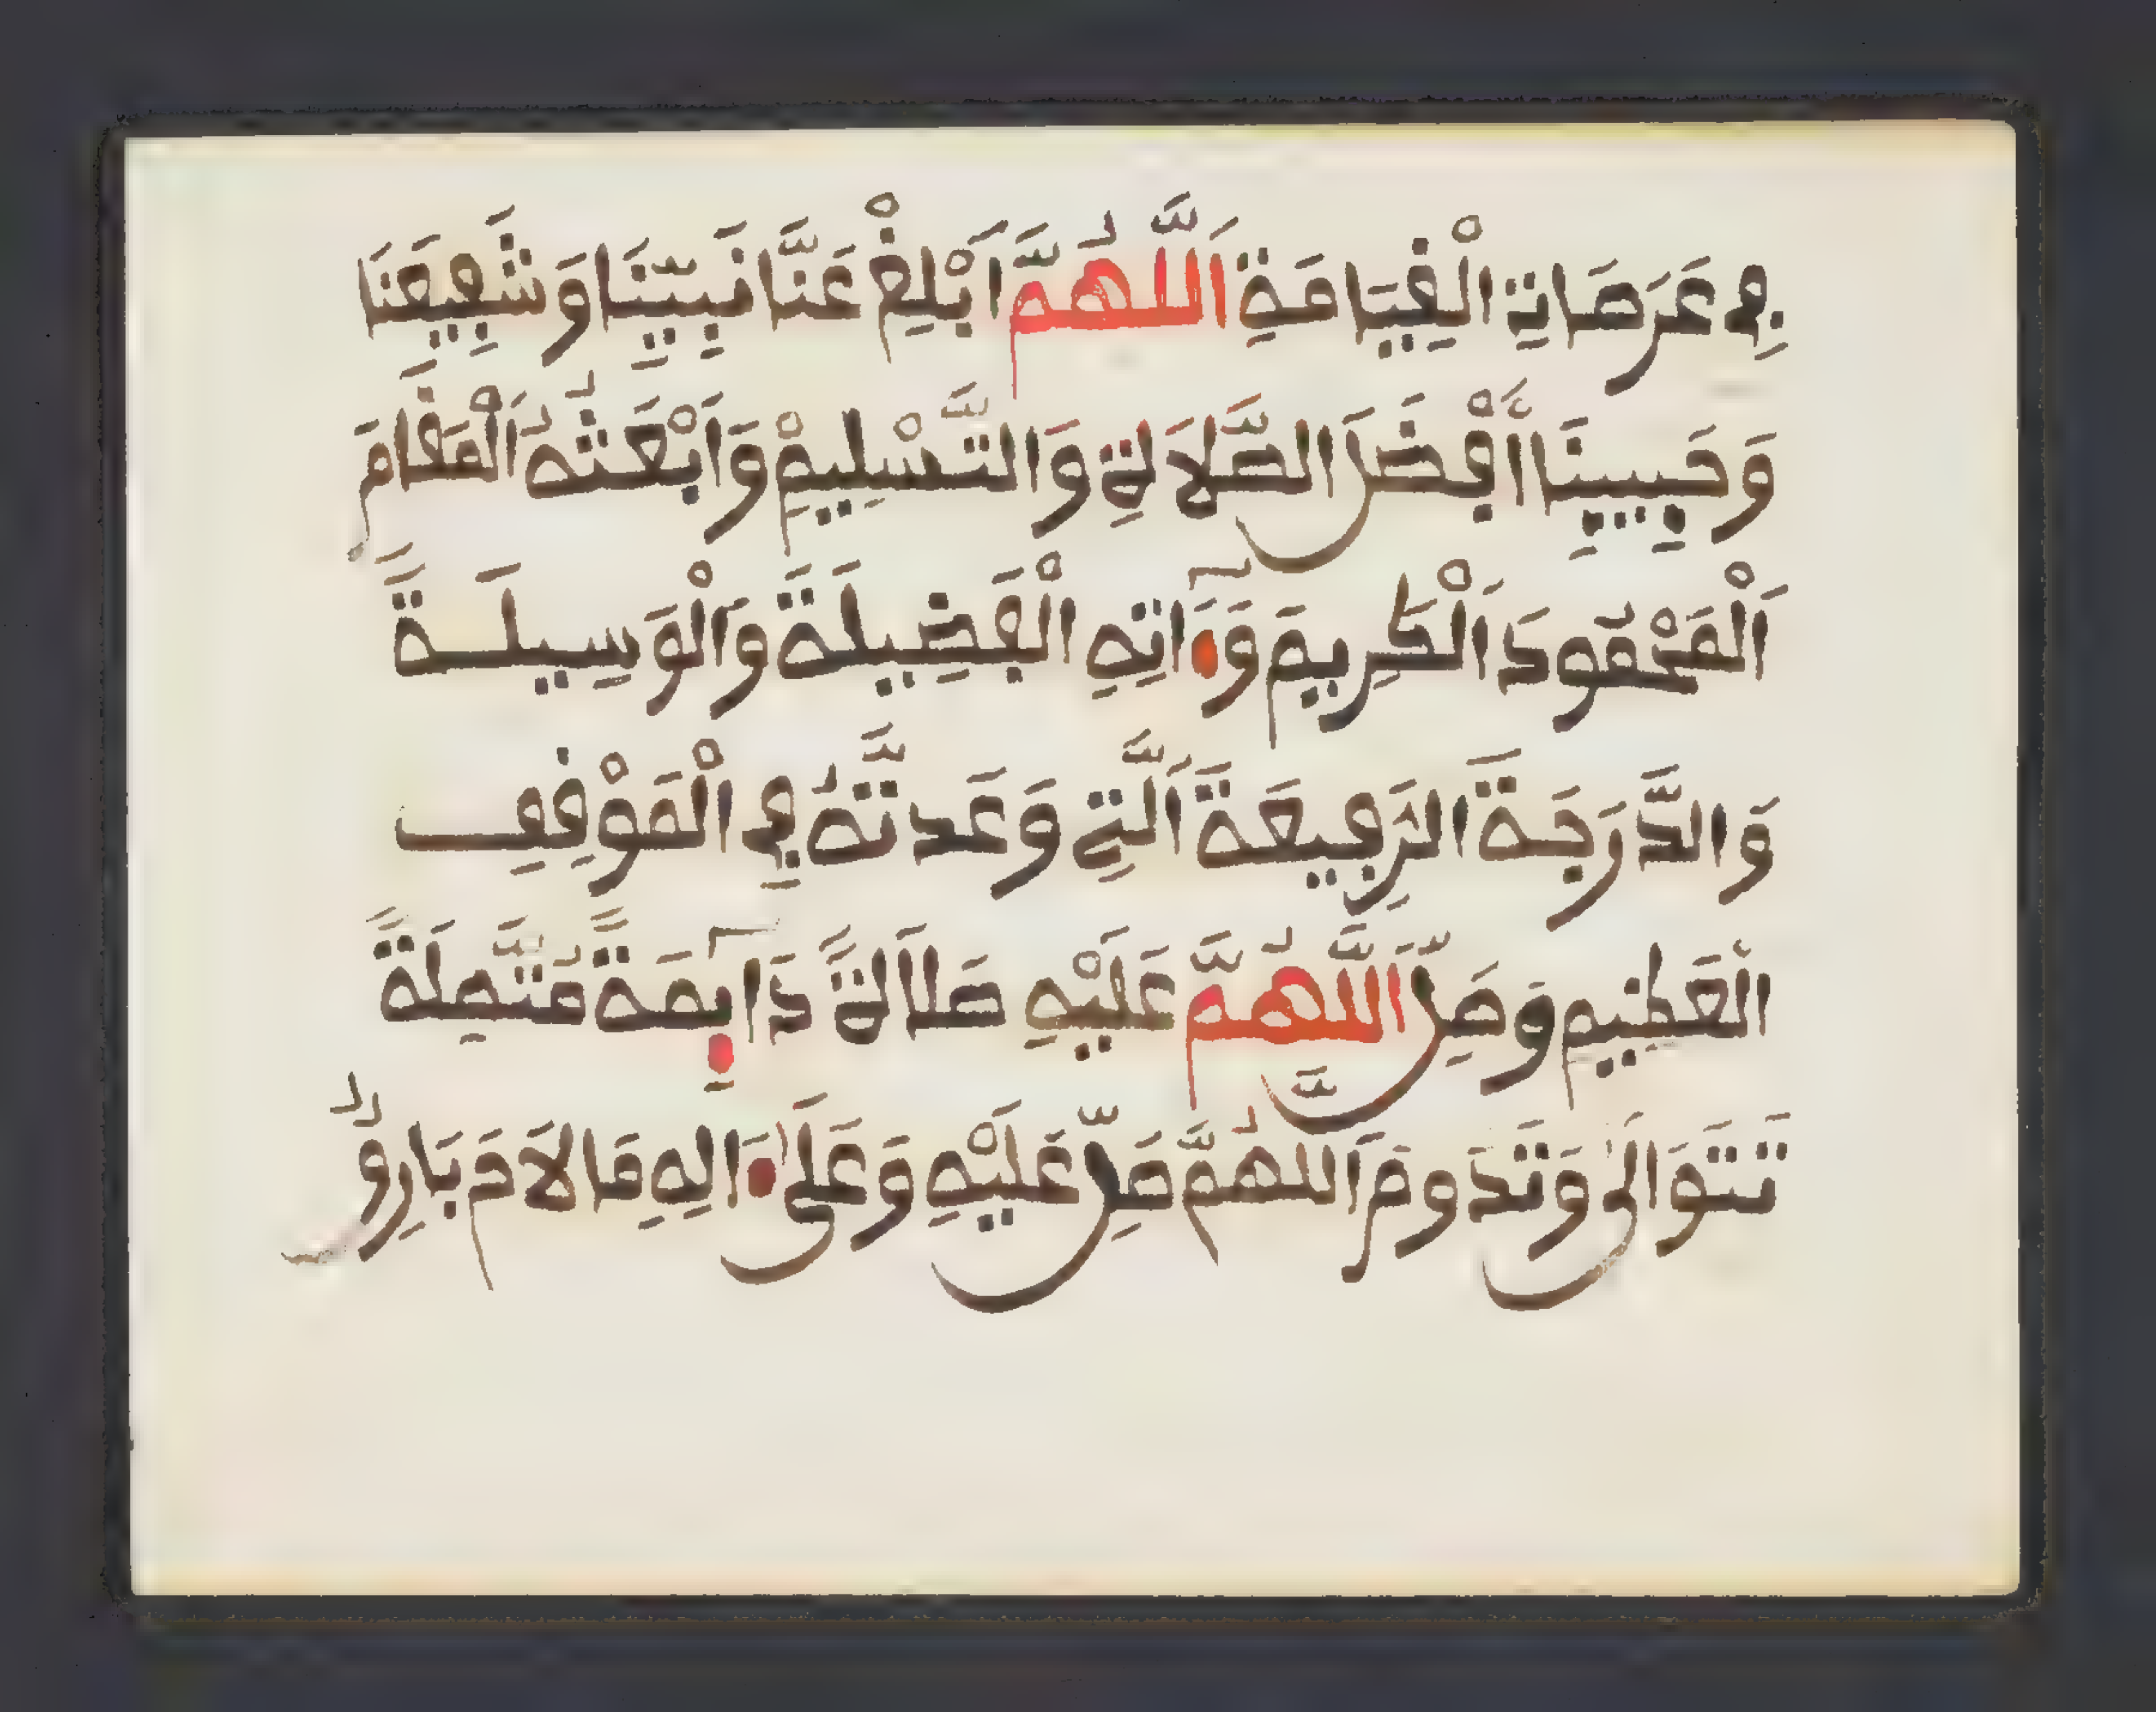 فِي عَرَصَاتِ الْقِيَامَةِ اَللَّهُمَّ اَبْلِغْ عَنَّا نَبِيَّنَا وَشَفِيعَنَا
وَحَبِيبِنَا أَفْضَلَ الصَّلَاةِ وَالتَّسْلِيمْ وَابْعَثْهُ اَلْمَقَامَ
اَلْمَحْمُودَ اَلْكَرِيمَ وَءَاتِهِ الْفَضِيلَةَ وَالْوَسِيلَةَ
وَالدَّرَجَةَ الرَفِيعَةَ اَلَّتِي وَعَدتَّهُ فِي الْمَوْقِفِ
الْعَظِيمِ وَصَلِّ اَللَّهُمَّ عَلَيْهِ صَلَاةً دَآئِمَةً مُتَّصِلَةً
تَتَوَالَى وَتَدَومَ اَللَّهُمَّ صَلِّ عَلَيْهِ وَعَلَى ءَالِهِ مَا لَاحَ بَارِقٌ